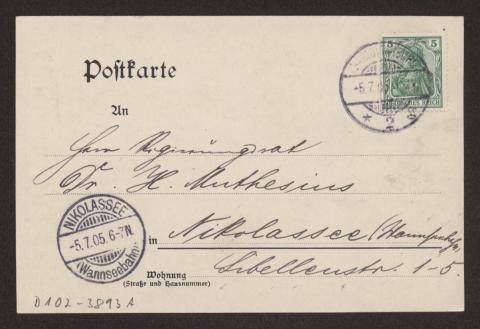 Postkarte
5 5
REICH
-5.7.0
* 2
An
Herrn Regierungsrat
Dr. H. Muthesius
NIKOLASSEE
-5.7.05.6-7N.
(Wannseebahn)
in Nikolassee (Wannseebahn)
Libellenstr. 1-5.
Wohnung
(Straße und Hausnummer)
D102-3893A